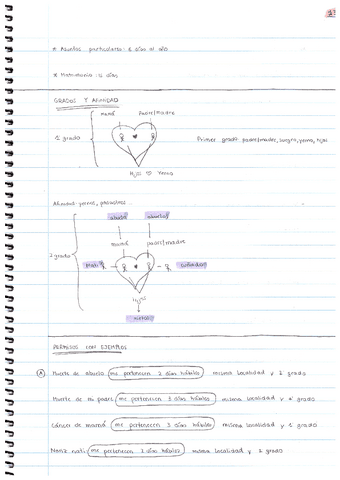 * Asuntos particulares: 6 días al año
* Matrimonio: 15 días
GRADOS Y AFINIDAD
mamá Padre/madre
1 grado
Hijos ♡ Yerno
Primer grado: padre/madre, suegra, yerno, hijos
Afinidad: yernos, padrastros...
abuelos abuelos
mamá padre/madre
2 grado
cuñados
Hijos
nietos
PERMISOS CON EJEMPLOS
Muerte de abuelo me pertenecen 2 días hábiles misma localidad y 2 grado
Muerte de mi padre me pertenecen 3 días hábiles misma localidad y 1 grado
Cáncer de mamá me pertenecen 3 días hábiles misma localidad y 1 grado
me pertenecen 2 días hábiles misma localidad y 2 grado